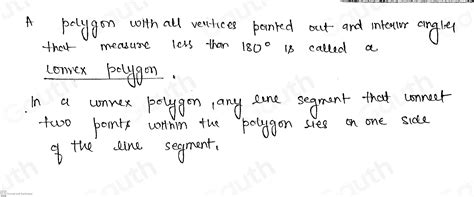 A polygon with all vertices pointed out and interior angles
that measure less than 180° is called a
convex polygon.
In a convex polygon, any line segment that connect
two points within the polygon lies on one side
of the line segment.